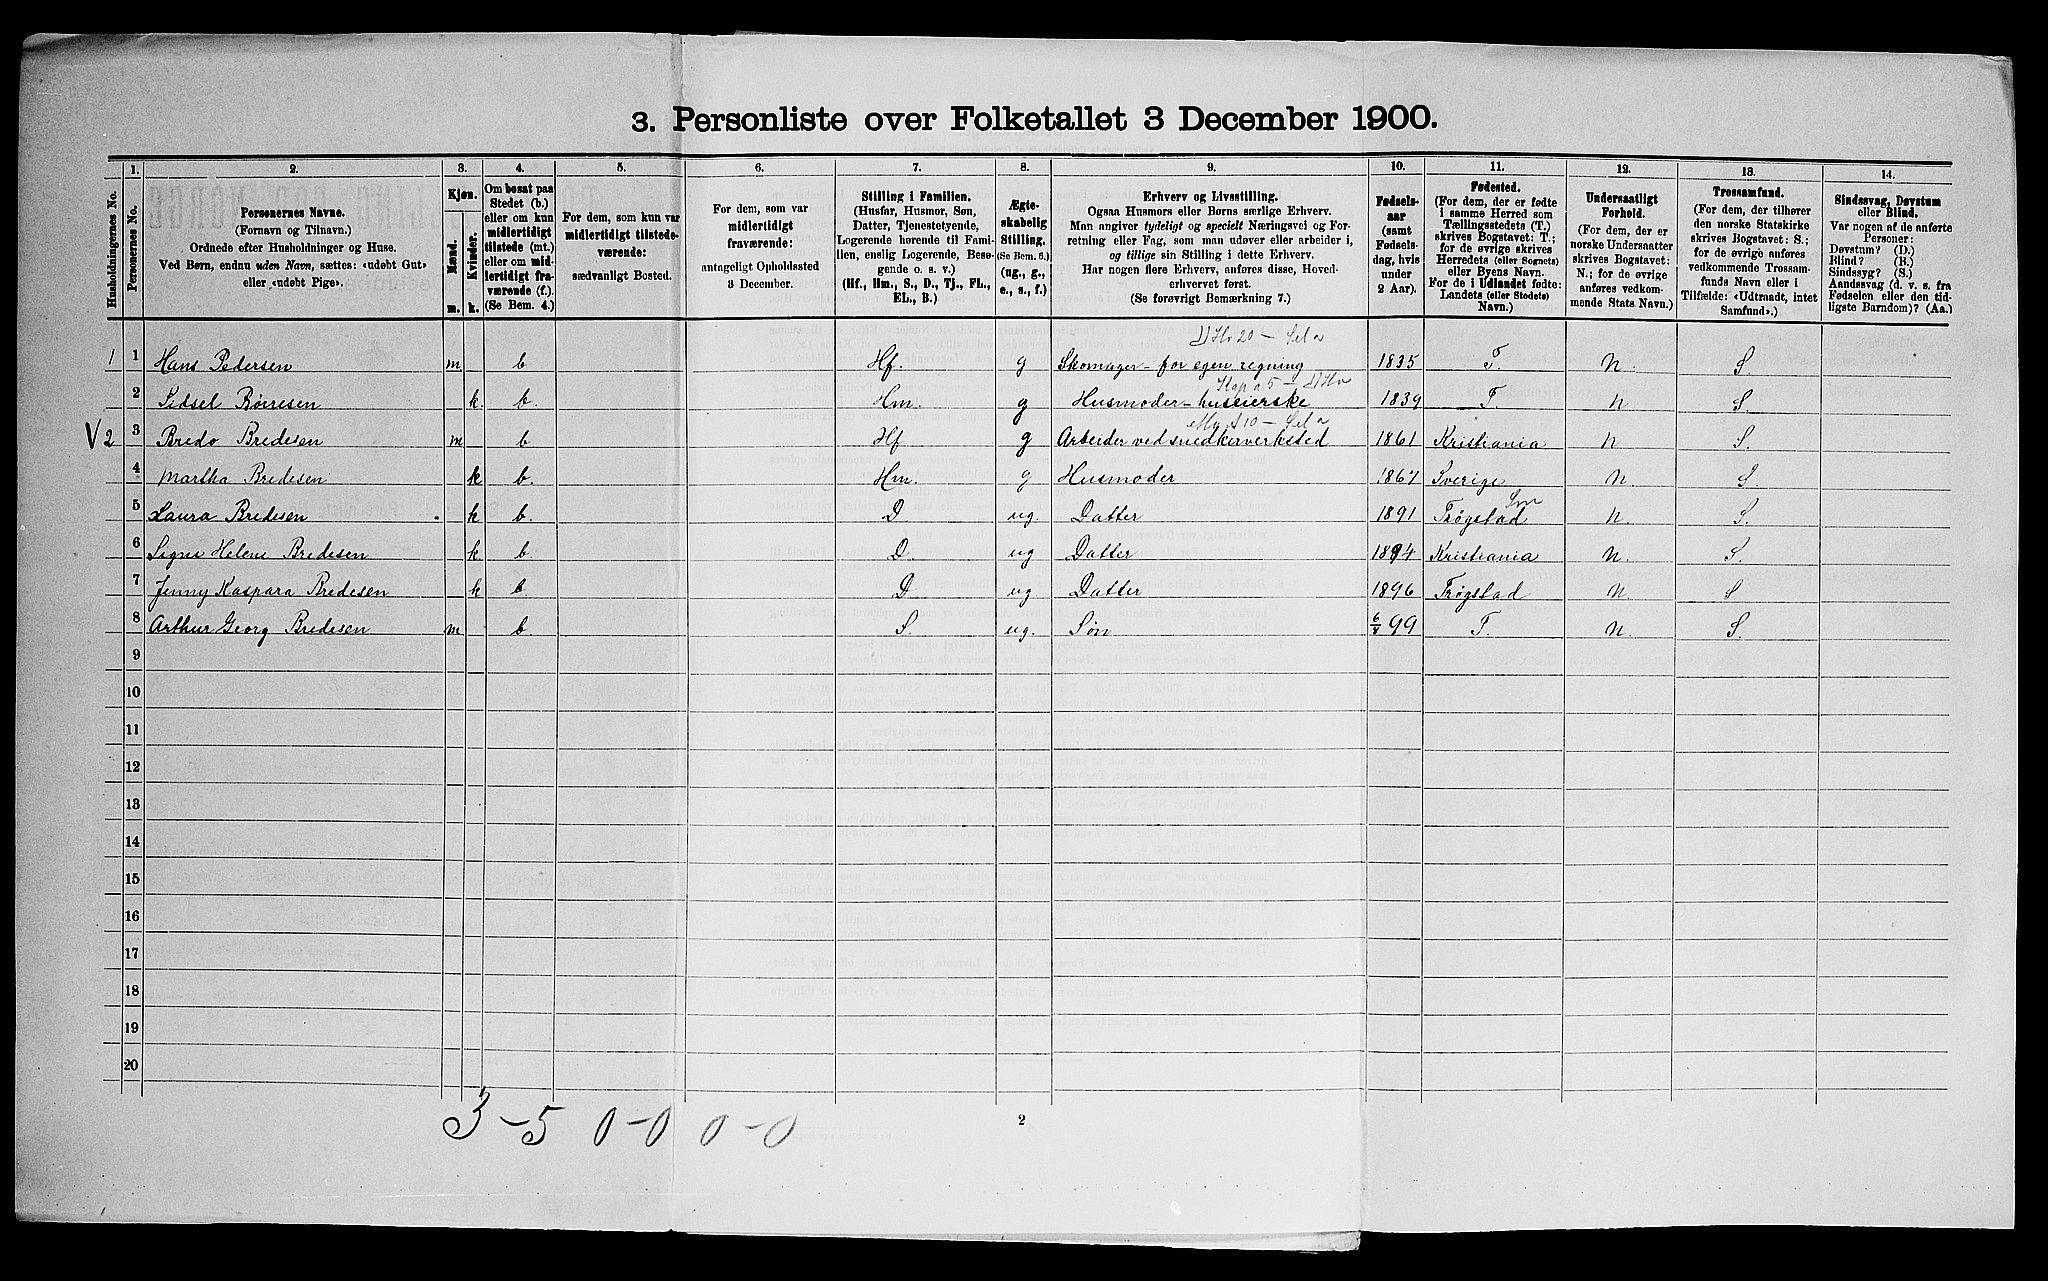 3. Personliste over Folketallet 3 December 1900.
Husholdningernes No.
1.
Personernes No.
2.
Personernes Navne.
(Fornavn og Tilnavn.)
Ordnede efter Husholdninger og Huse.
Ved Børn, endnu uden Navn, sættes: «udøbt Gut»
eller «udøbt Pige».
3.
Kjøn.
Mænd.
Kvinder.
m.
k.
4.
Om bosat paa
Stedet (b.)
eller om kun
midlertidigt
tilstede (mt.)
eller om mid-
lertidigt fra-
værende (f.)
(Se Bem. 4.)
5.
For dem, som kun var
midlertidigt tilstede-
værende:
sædvanligt Bosted.
6.
For dem, som var
midlertidigt
fraværende:
antageligt Opholdssted
3 December.
7.
Stilling i Familien.
(Husfar, Husmor, Søn,
Datter, Tjenestetyende,
Logerende hørende til Fami-
lien, enslig Logerende, Besø-
gende o. s. v.)
(Hf., Hm., S., D., Tj., FL.,
EL., B.)
8.
Ægte-
skabelig
Stilling.
(Se Bem. 6.)
(ug., g.,
e., s., f.)
9.
Erhverv og Livsstilling.
Ogsaa Husmors eller Børns særlige Erhverv.
Man angiver tydeligt og specielt Næringsvei og For-
retning eller Fag, som man udøver eller arbeider i,
og tillige sin Stilling i dette Erhverv.
Har nogen flere Erhverv, anføres disse, Hoved-
erhvervet først.
(Se forøvrigt Bemærkning 7.)
10.
Fødsels-
aar
(samt
Fødsels-
dag, hvis
under
2 Aar).
11.
Fødested.
(For dem, der er fødte
i samme Herred som
Tællingsstedets (T.)
skrives Bogstavet: T.;
for de øvrige skrives
Herredets (eller Sognets)
eller Byens Navn.
For de i Udlandet fødte:
Landets (eller Stedets)
Navn.)
12.
Undersaatligt
Forhold.
(For dem, der er
norske Undersaatter
skrives Bogstavet:
N.; for de øvrige
anføres vedkom-
mende Stats Navn.)
13.
Trossamfund.
(For dem, der tilhører
den norske Statskirke
skrives Bogstavet: S.;
for de øvrige anføres
vedkommende Trossam-
funds Navn eller i
Tilfælde: «Udtraadt, intet
Samfund».)
14.
Sindssvag, Døvstum
eller Blind.
Var nogen af de anførte
Personer:
Døvstum? (D.)
Blind? (B.)
Sindssyg? (S.)
Aandssvag (d. v. s. fra
Fødselen eller den tid-
ligste Barndom)? (Aa.)
1 1 Hans Pedersen m b Hf. g Skomager - for egen regning 1835 T. N. S.
2 Sidsel Böiresen k. b. Hm. g Husmoder - 1839 T. N S.
V 2 3 Bredo Bredesen m b Hf g Arbeider ved snedkerverksted 1861 Kristiania N S.
4 Martha Bredesen k b. Hm. g Husmoder 1867 Sverige N. S
5 Laura Bredesen k b. D. ug. Datter 1891 Trøgstad N. S.
6 Signe Helene Bredesen k b. D. ug Datter 1894 Kristiania N. S.
7 Jenny Kaspara Bredesen k b. D ug Datter 1896 Trøgstad N S
8 Arthur Georg Bredesen m b. S. ug. Søn 99 T. N. S.
9
10
11
12
13
14
15
16
17
18
19
20
3 - 5 0 - 0 0 - 0
2